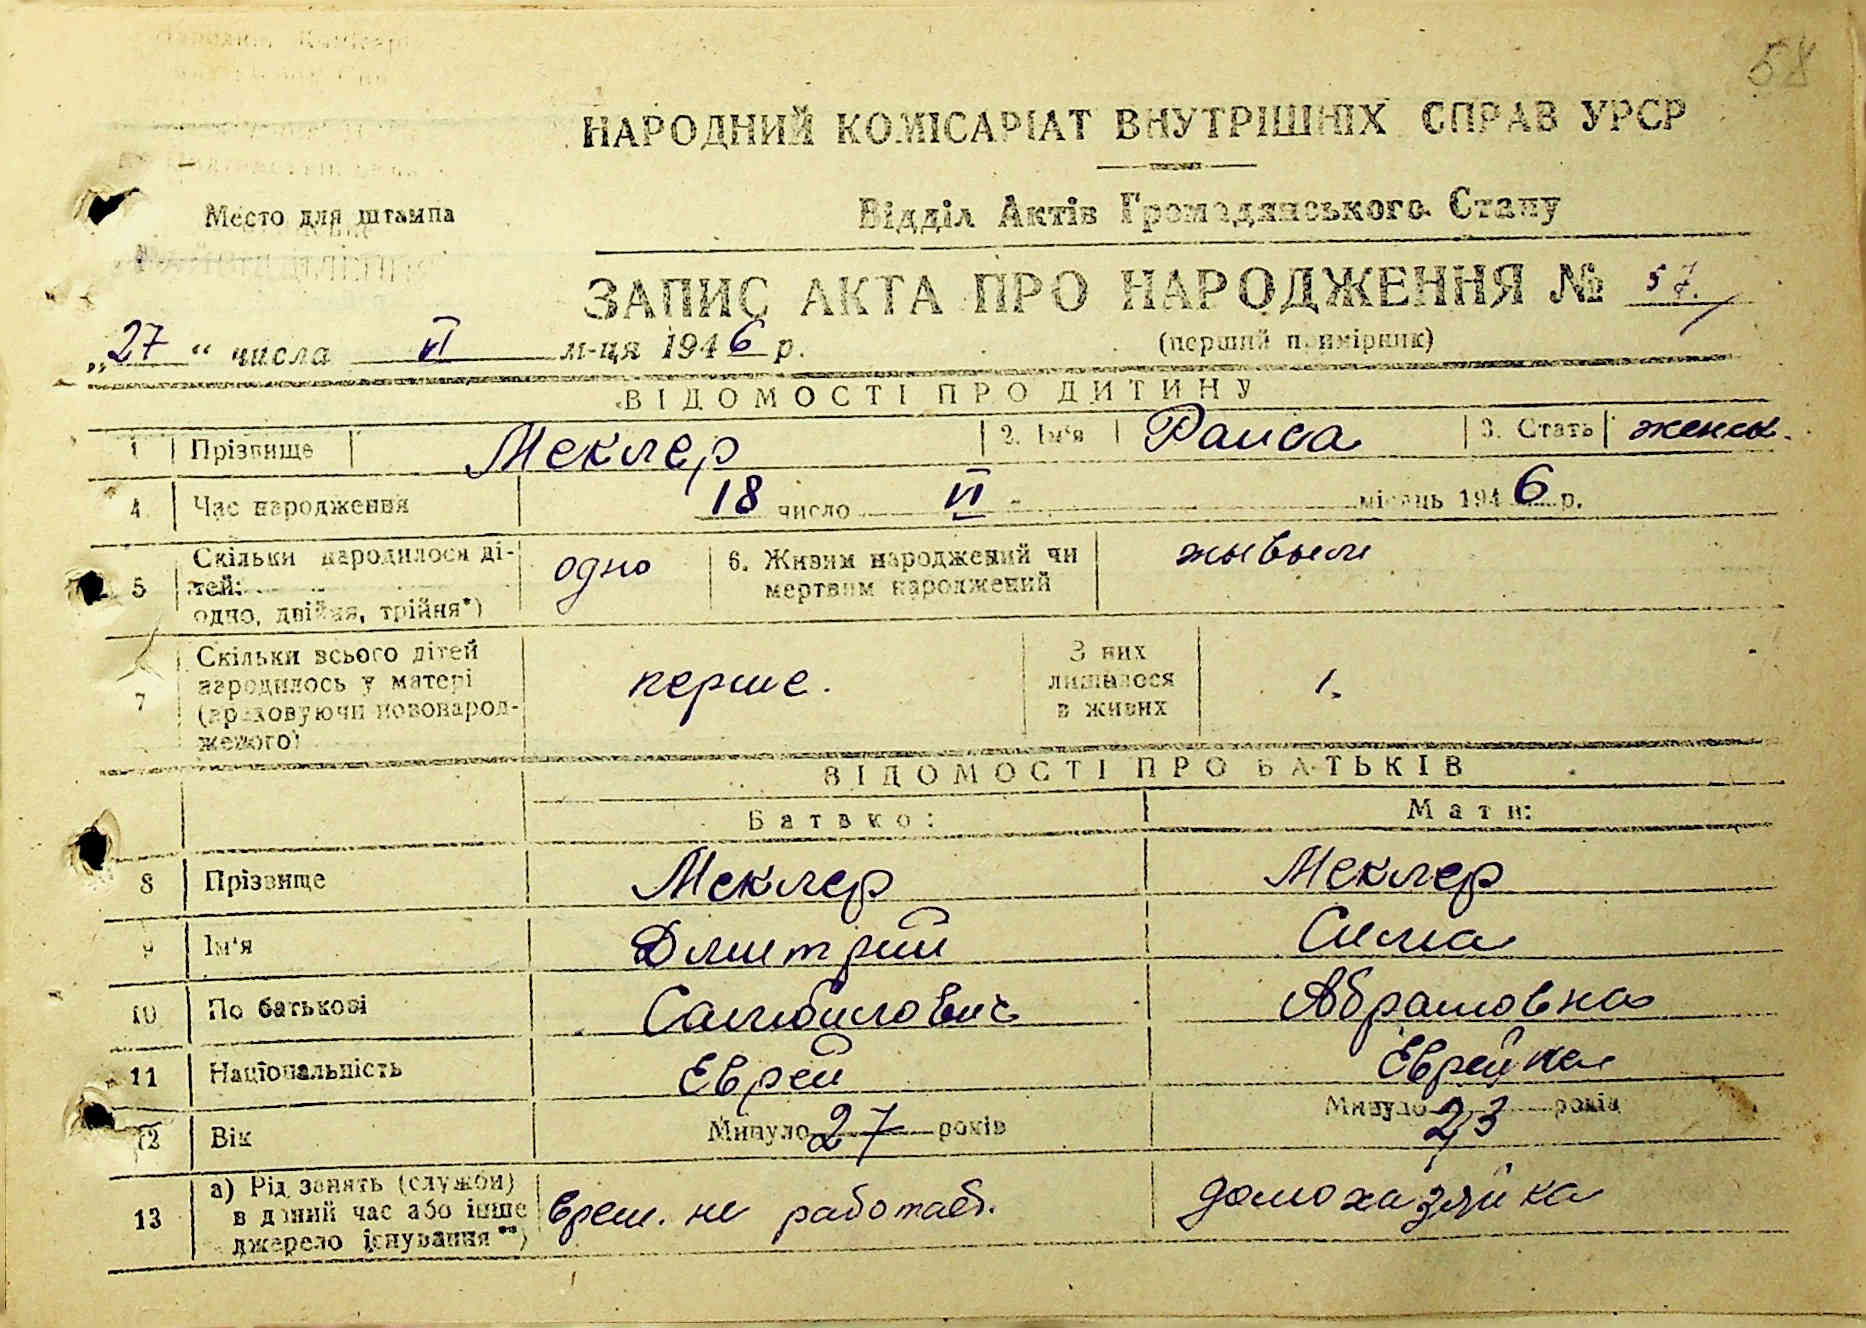 58
НАРОДНИЙ КОМІСАРІАТ ВНУТРІШНІХ СПРАВ УРСР
Место для штампа
Відділ Актів Громадянського Стану
ЗАПИС АКТА ПРО НАРОДЖЕННЯ № 57.
„27“ числа VI м-ця 1946 р.
(перший примірник)
ВІДОМОСТІ ПРО ДИТИНУ
1 Прізвище Меклер 2. Ім'я Раиса 3. Стать женск.
4. Час народження 18 число VI місяць 1946 р.
5 Скільки народилося ді-
тей:
одно, двійня, трійня*)
одно
6. Живим народжений чи
мертвим народжений
живым
7 Скільки всього дітей
народилось у матері
(враховуючи новонарод-
женого)
перше.
З них
лишилося
в живих
1.
ВІДОМОСТІ ПРО БАТЬКІВ
Батько: Мати:
8 Прізвище Меклер Меклер
9 Ім'я Дмитрий Сима
10 По батькові Самойлович Абрамовна
11 Національність Еврей Еврейка
12 Вік Минуло 27 років Минуло 23 років
13 а) Рід занять (служби)
в даний час або інше
джерело існування**)
врем. не работает.
домохазяйка